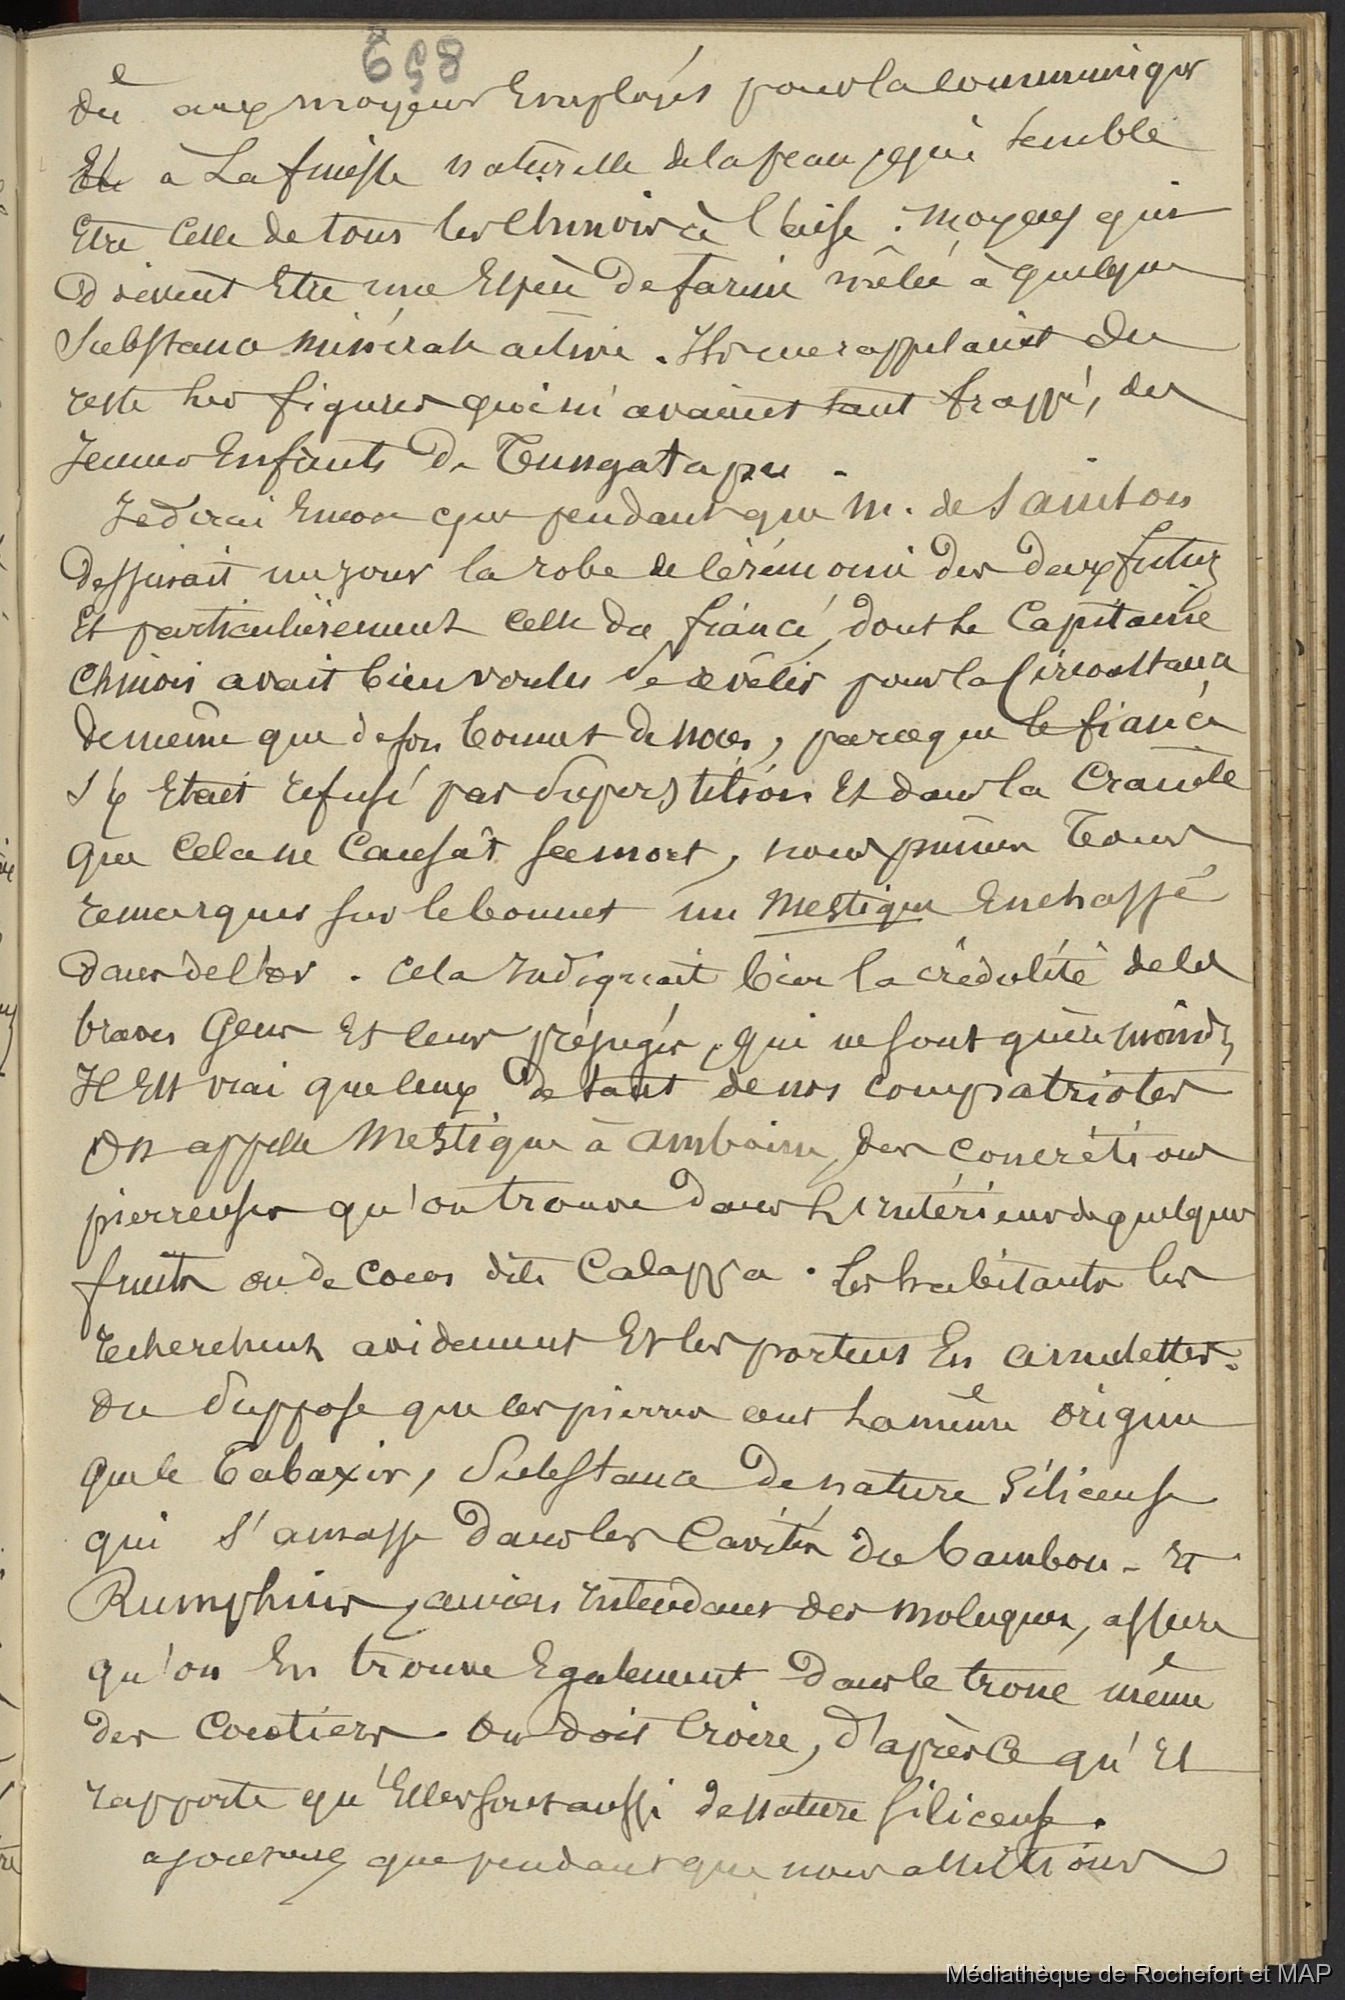 858
dûe aux moyens Employés pour la communiquer
Et à La finesse naturelle de la peau, ce qui semble
Etre Celle de tous les Chinois à l'aise. Moyens qui
Doivent Etre une Espèce De farine mêlée à quelque
Substance minérale active. Ils me rappelaient du
reste les figures qui m'avaient tant frappé, des
Jeunes Enfants De Tungatapu.
Je dirai Encore que pendant que M. de Sainson
Dessinait un jour la robe de Cérémonie des deux futurs
Et particulièrement celle du fiancé, dont le Capitaine
Chinois avait bien voulu se revêtir pour la Circonstance
de même que de son bonnet de noces, parceque le fiancé
s'y Etait refusé par Superstition Et dans la Crainte
que Cela ne Causât sa mort, nous pumes Tous
remarquer sur le bonnet un Mestique Enchassé
dans de l'or. Cela Indiquait bien la crédulité de ces
braves Gens Et leurs préjugés, qui ne sont guère moindres
Il Est vrai que ceux de tant de nos compatriotes
On appelle Mestique à Amboine, des concrétions
pierreuses qu'on trouve dans L'Intérieur de quelques
fruits ou de Cocos dits Calappa. Les habitants les
recherchent avidement Et les portent En amulettes.
On Suppose que ces pierres ont la même origine
que le Tabaxir, Substance De nature Siliceuse
qui s'amasse Dans les Cavités du bambou - Et
Rumphius, ancien Intendant des Moluques, assure
qu'on En trouve Egalement Dans le tronc même
des Cocotiers. On doit Croire, d'après Ce qu'Il
rapporte qu'Elles sont aussi de nature Siliceuse.
ajoutons que pendant que nous assistions
Médiathèque de Rochefort et MAP